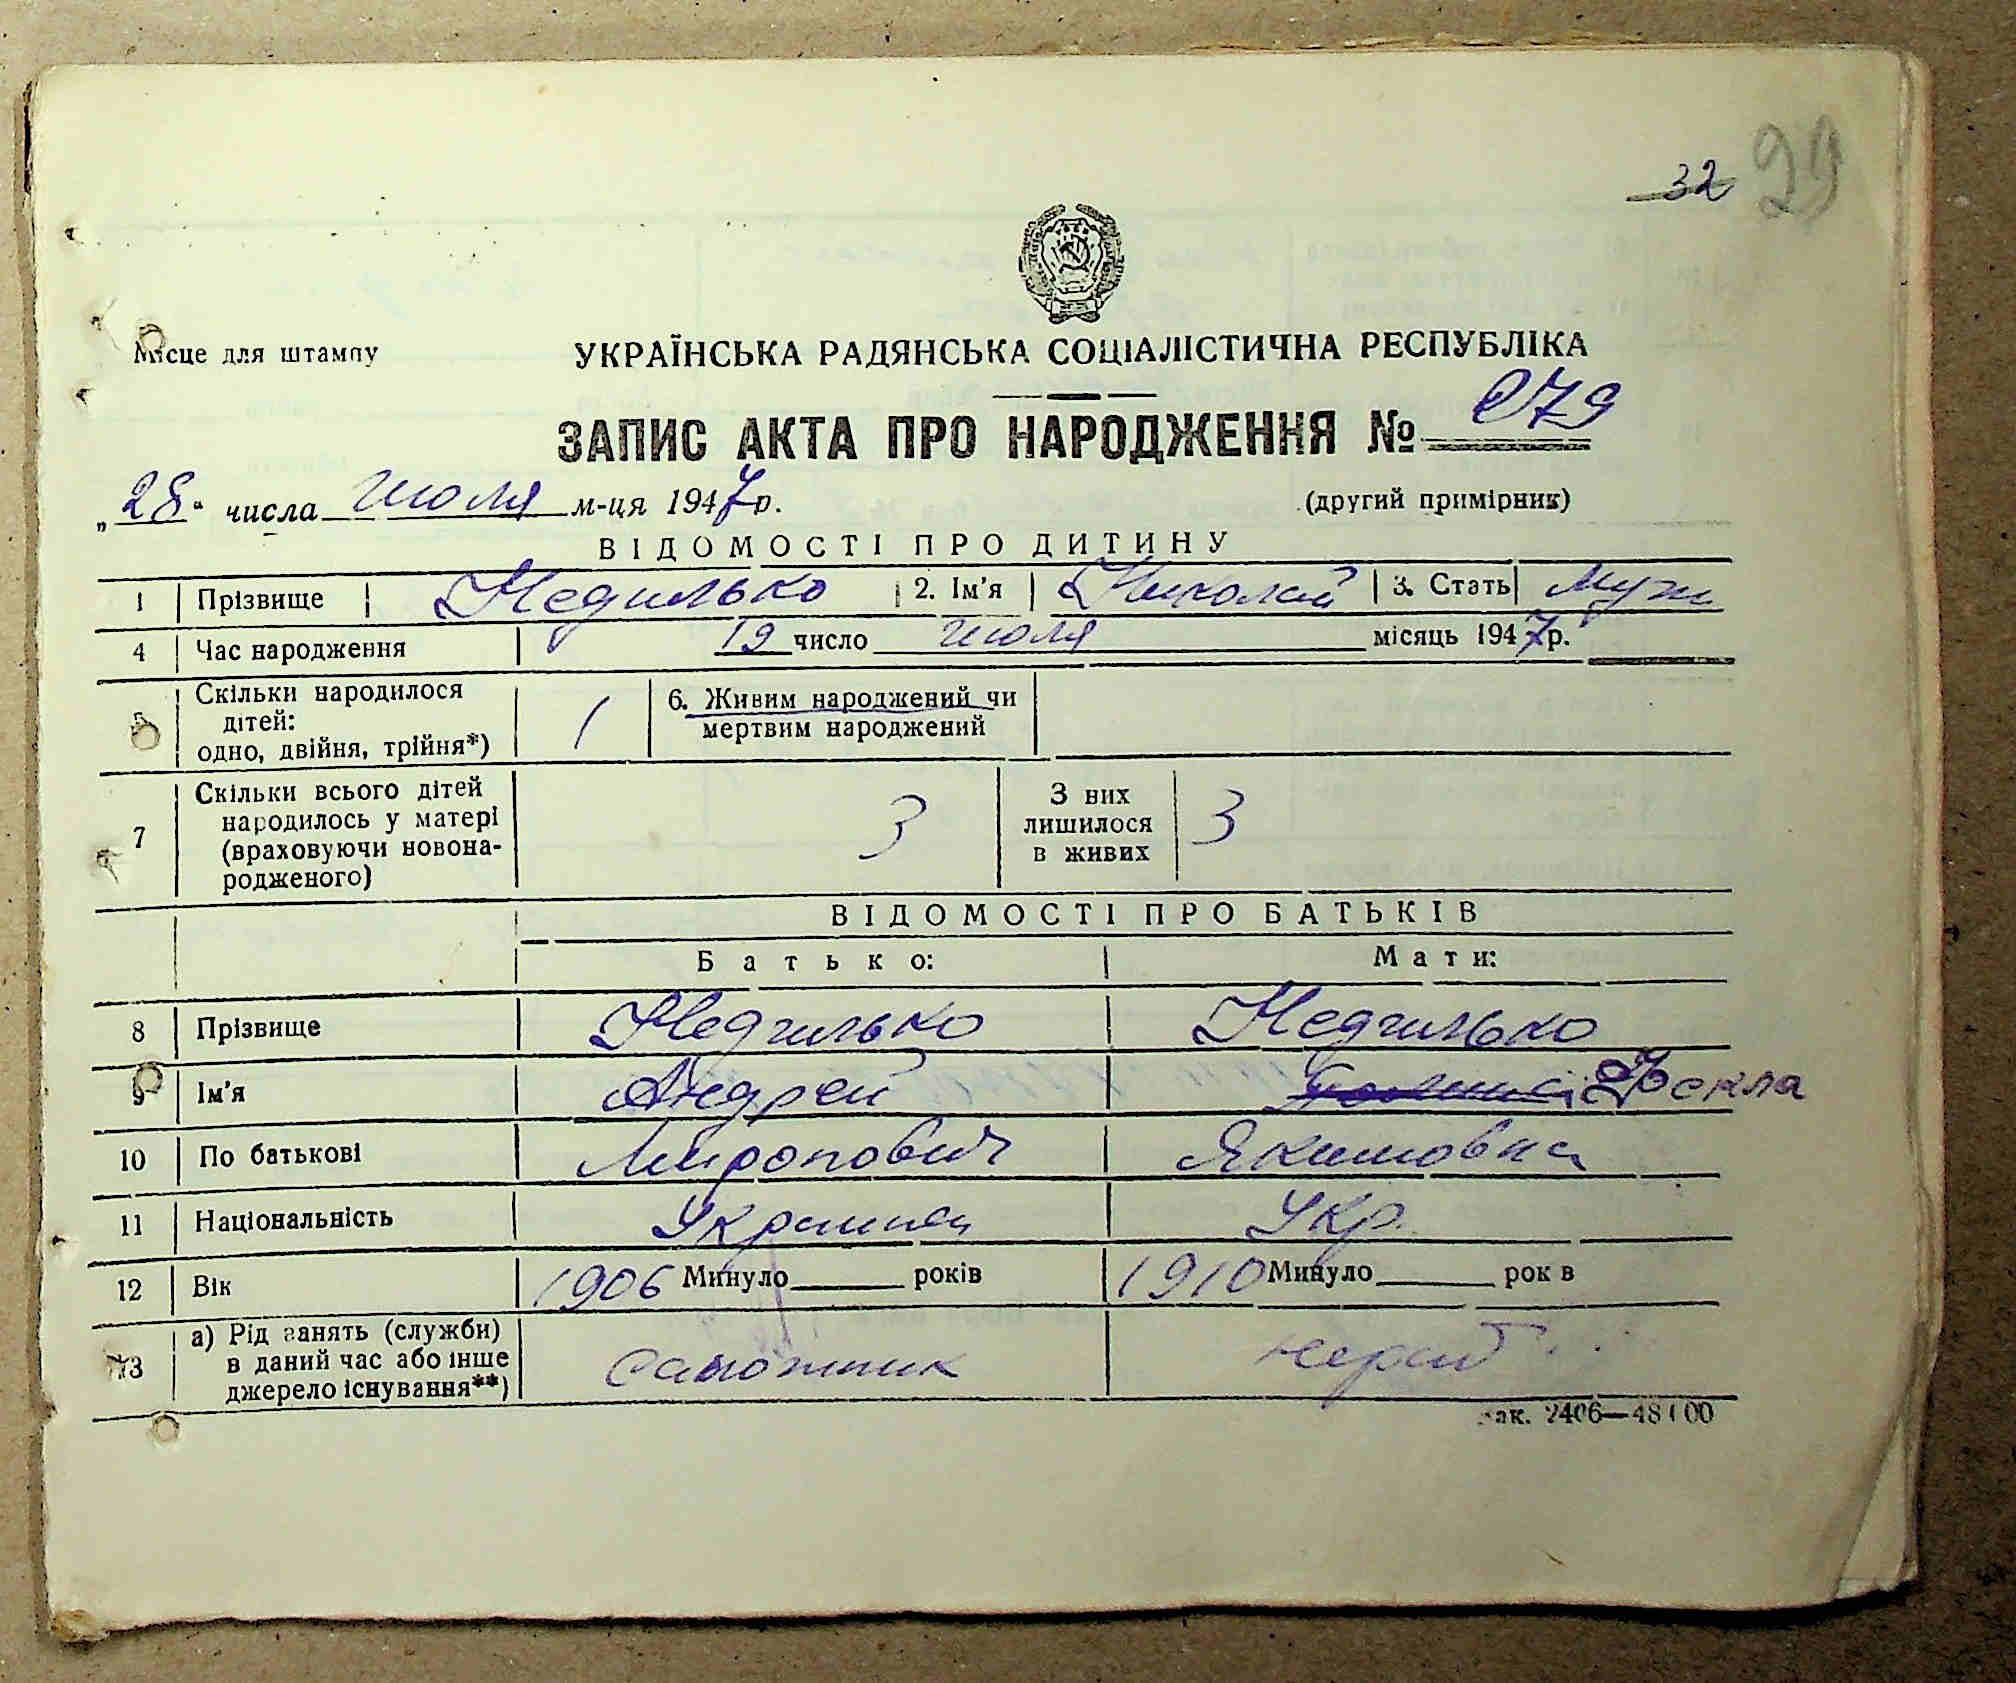 32 29
Місце для штампу
УКРАЇНСЬКА РАДЯНСЬКА СОЦІАЛІСТИЧНА РЕСПУБЛІКА
ЗАПИС АКТА ПРО НАРОДЖЕННЯ № 279
„28“ числа июля м-ця 1947 р. (другий примірник)
ВІДОМОСТІ ПРО ДИТИНУ
1 Прізвище Недилько 2. Ім'я Николай 3. Стать Муж
4 Час народження 19 число июля місяць 1947 р.
5 Скільки народилося дітей: одно, двійня, трійня*) 1 6. Живим народжений чи мертвим народжений
7 Скільки всього дітей народилось у матері (враховуючи новонародженого) 3 З них лишилося в живих 3
ВІДОМОСТІ ПРО БАТЬКІВ
Батько: Мати:
8 Прізвище Недилько Недилько
9 Ім'я Андрей Фекла
10 По батькові Миронович Якимовна
11 Національність Украинец Укр.
12 Вік 1906 Минуло років 1910 Минуло років
13 а) Рід занять (служби) в даний час або інше джерело існування**) сапожник нераб
Зак. 2406—48100